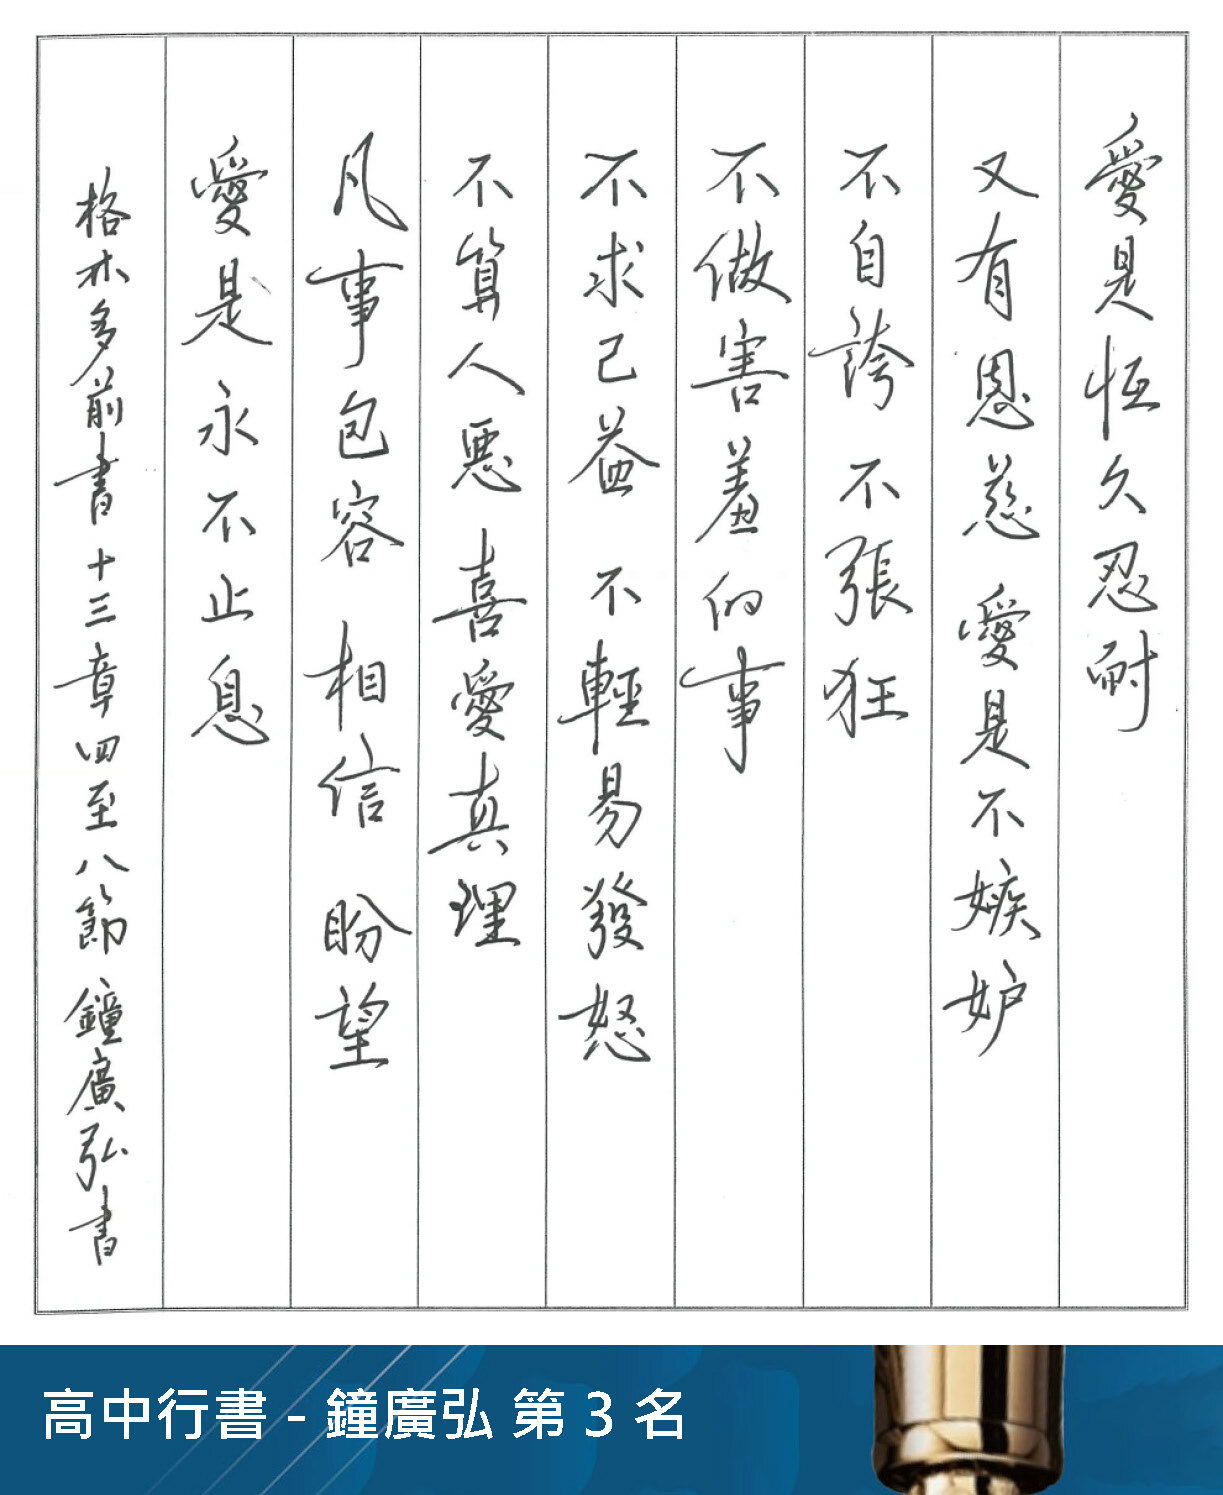 愛是恆久忍耐
又有恩慈 愛是不嫉妒
不自誇 不張狂
不做害羞的事
不求己益 不輕易發怒
不算人惡 喜愛真理
凡事包容 相信 盼望
愛是永不止息
格林多前書十三章四至八節 鐘廣弘書
高中行書 - 鐘廣弘 第 3 名